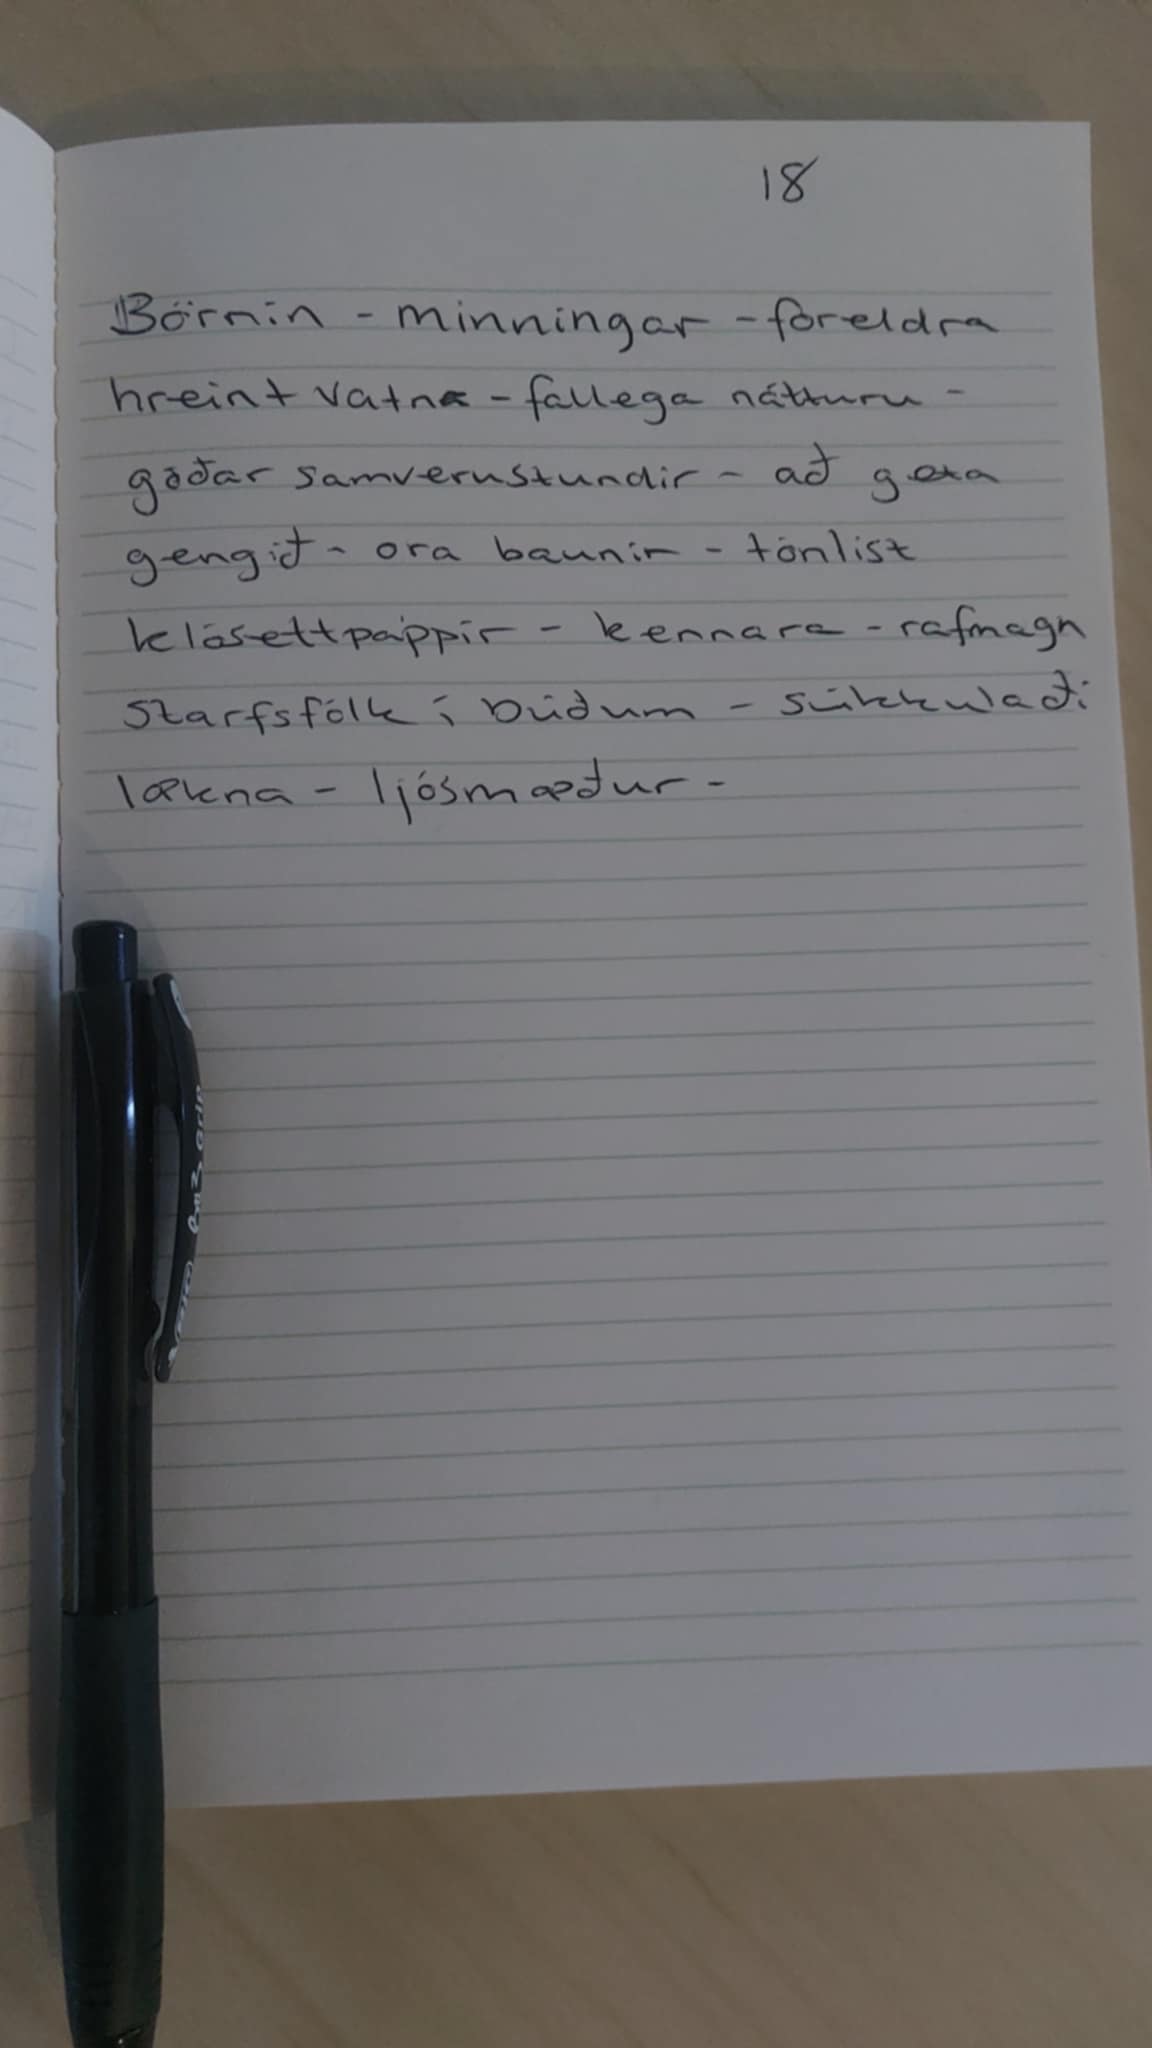 18
Börnin - minningar - foreldra
hreint vatn - fallega náttúru -
góðar samverustundir - að geta
gengið - ora baunir - tónlist
klósettpappír - kennara - rafmagn
starfsfólk í búðum - súkkulaði
lækna - ljósmæður -